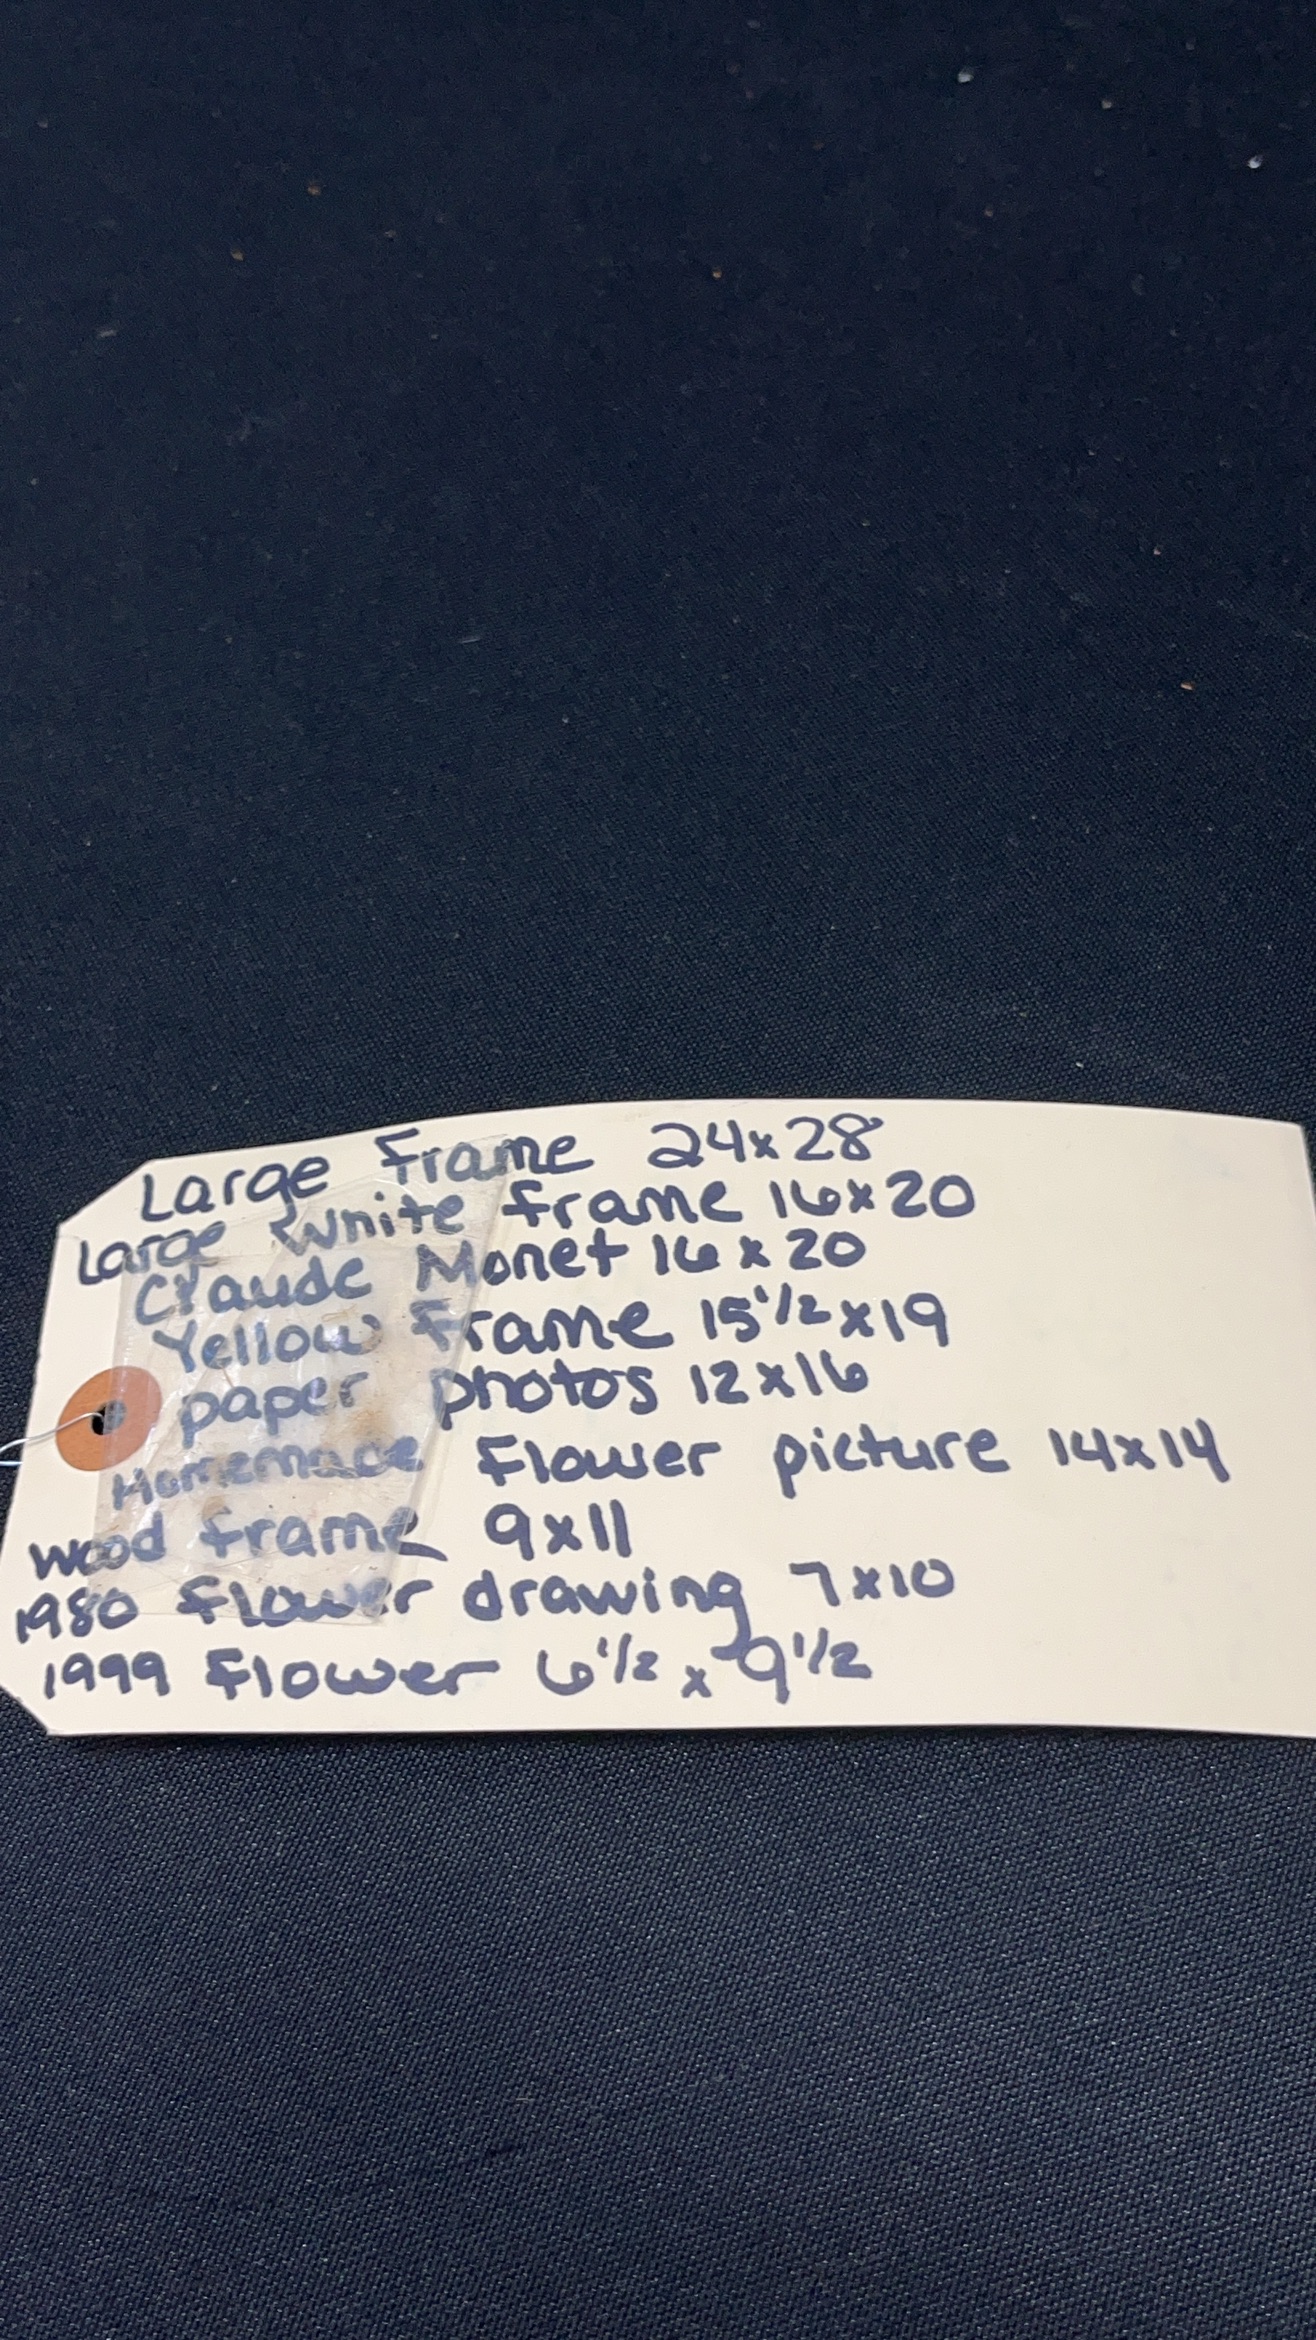 Large Frame 24x28
Large White frame 16x20
Claude Monet 16x20
Yellow Frame 15 1/2 x19
paper photos 12x16
Homemade Flower picture 14x14
wood frame 9x11
1980 flower drawing 7x10
1999 Flower 6 1/2 x 9 1/2